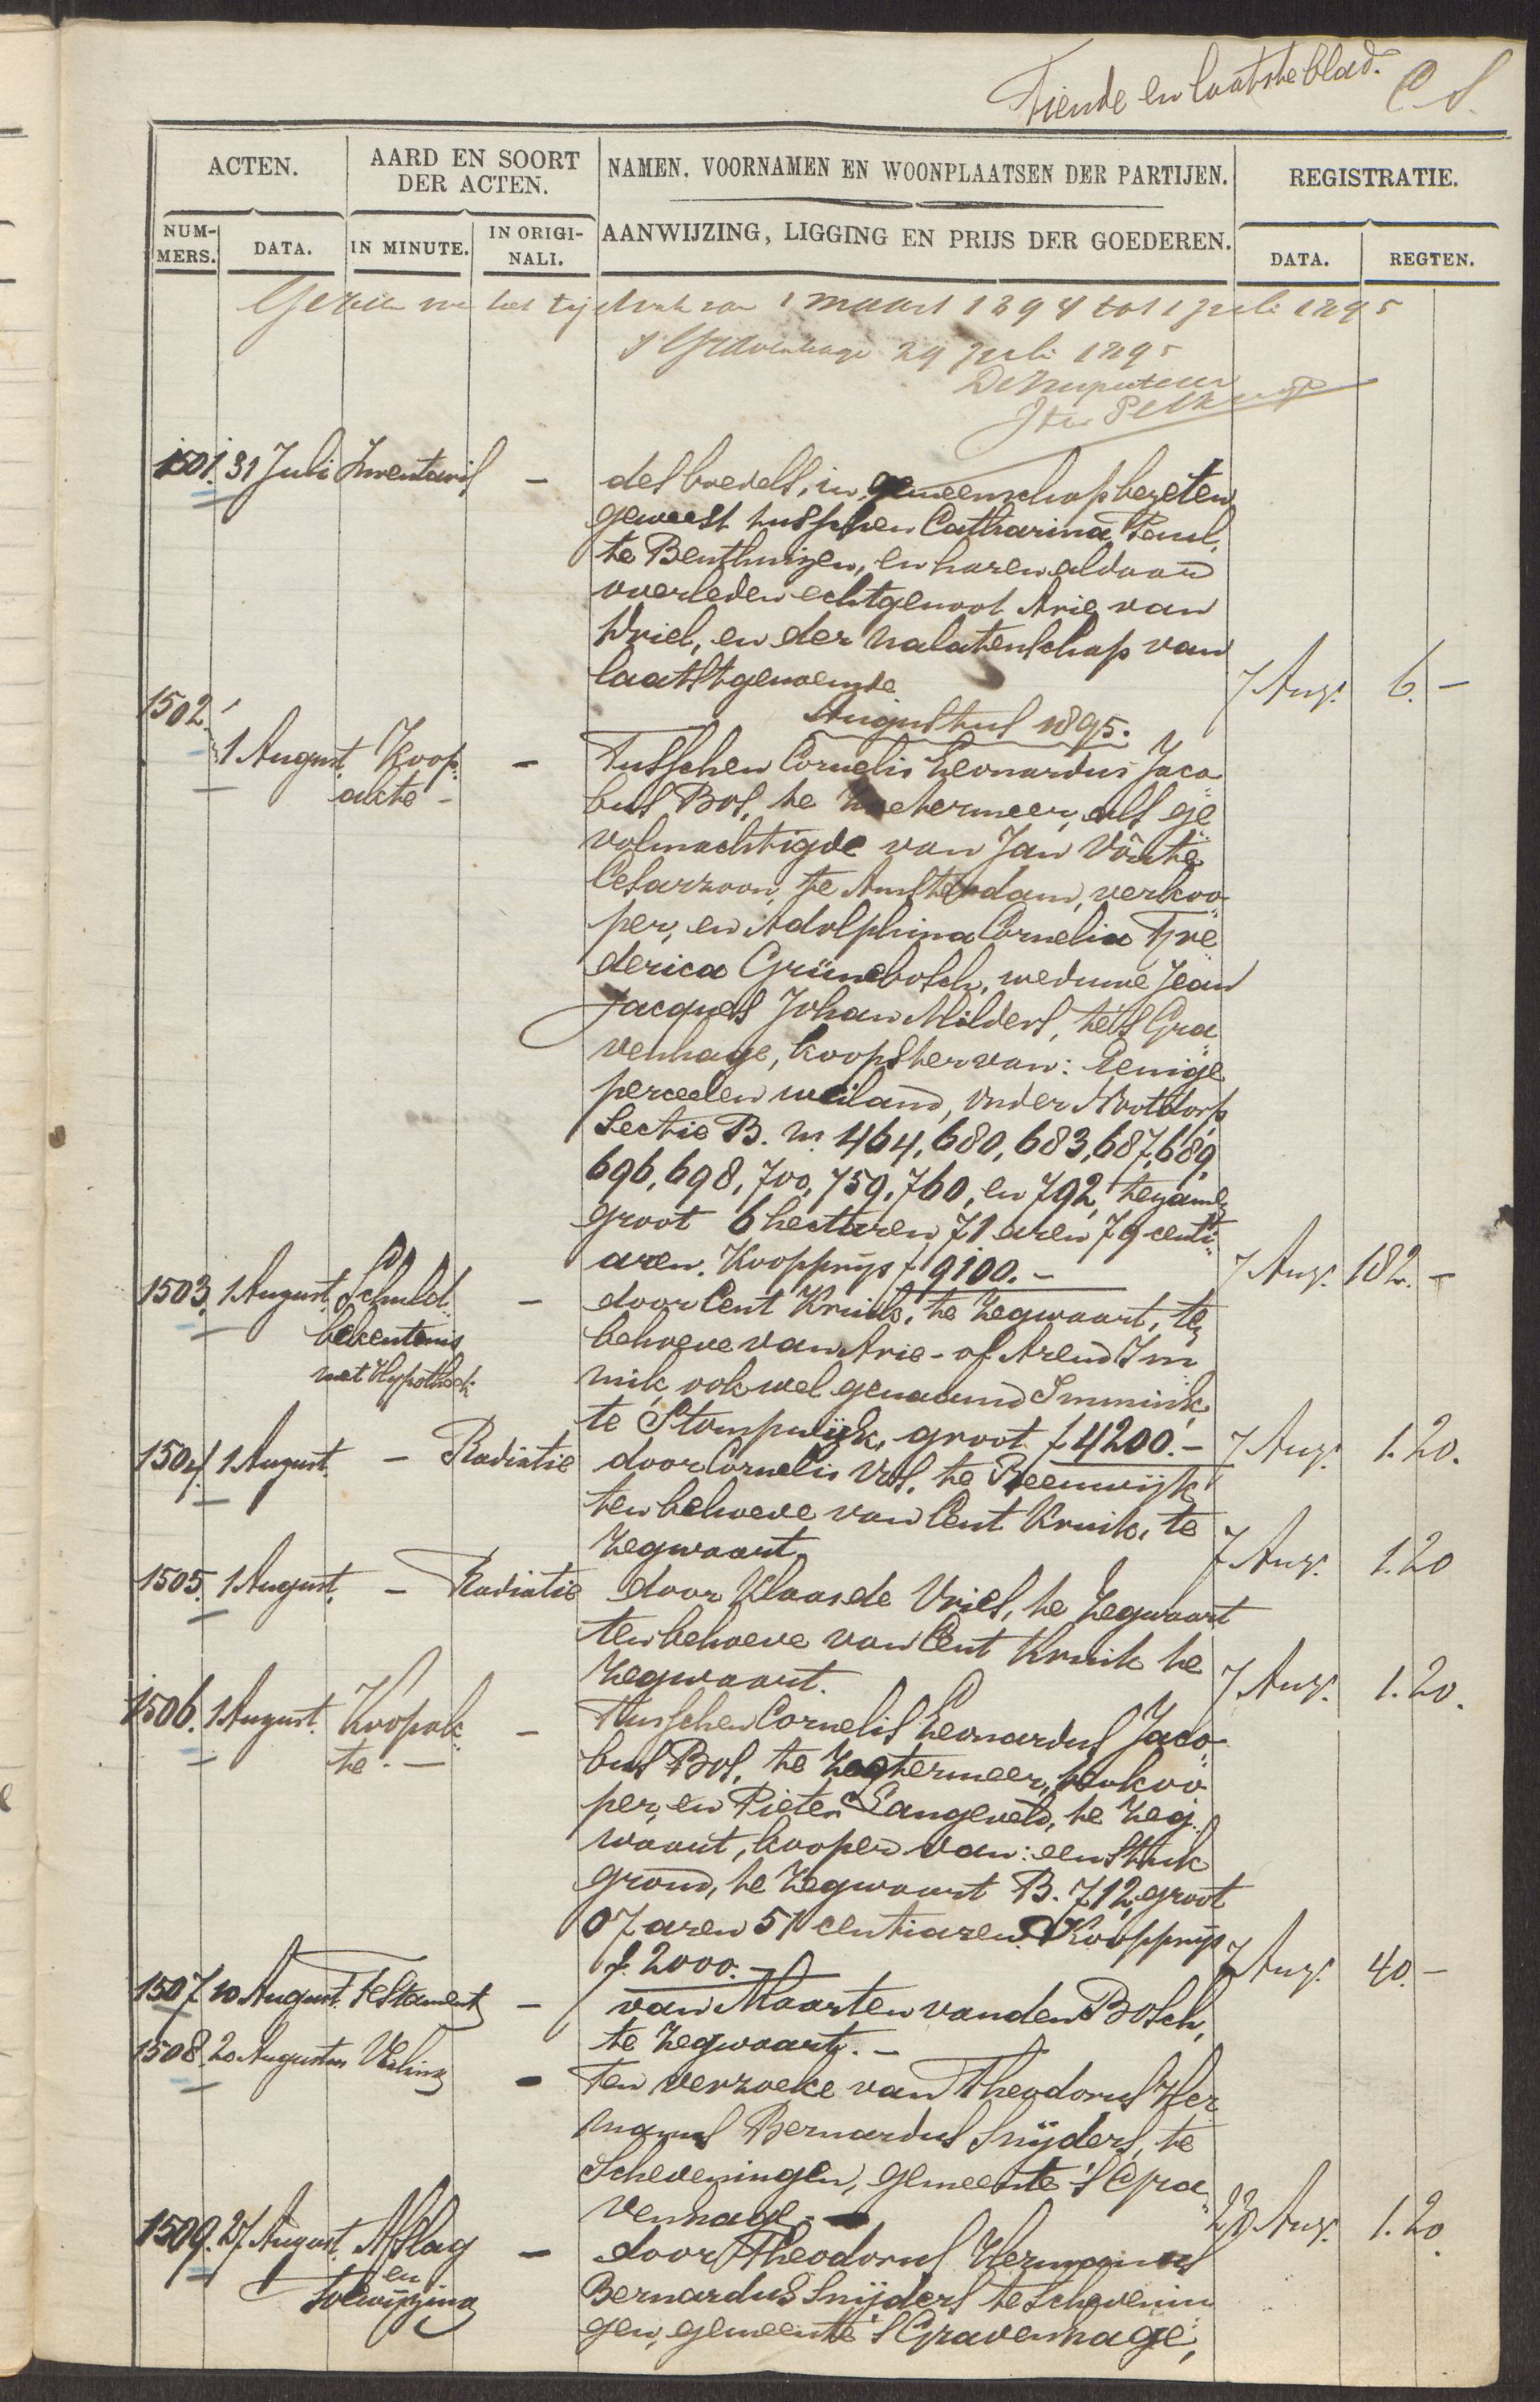 Tiende en laatste blad. C S.
ACTEN.
AARD EN SOORT
DER ACTEN.
NAMEN, VOORNAMEN EN WOONPLAATSEN DER PARTIJEN.
REGISTRATIE.
NUM-
MERS.
DATA.
IN MINUTE.
IN ORIGI-
NALI.
AANWIJZING, LIGGING EN PRIJS DER GOEDEREN.
DATA.
REGTEN.
Gezien het tijdvak van 1 maart 1894 tot 1 juli 1895
s Gravenhage 29 juli 1895
1501. 31 Juli Inventaris - des boedels, in gemeenschap bezeten
geweest tusschen Catharina
te Benthuizen, en haren aldaar
overleden echtgenoot Arie van
Driel, en der nalatenschap van
laatstgenoemde 7 Aug. 6. -
Augustus 1895.
1502. 1 August. Koop- - Tusschen Cornelis Leonardus Jaco-
akte - bus Bos, te Zoetermeer, als ge-
volmachtigde van Jan Vôute
Cesarzoon, te Amsterdam, verkoo-
per, en Adolphina Cornelia Fre-
derica Grünebosch, weduwe Jean
Jacques Johan Milders, te 's Gra-
venhage, koopster van: Eenige
perceelen weiland, onder Nootdorp
Sectie B. nrs 464, 680, 683, 687, 689,
696, 698, 700, 759, 760, en 792, tezamen
groot 6 hectaren, 71 aren 79 centi-
aren. Koopprijs f 9100. - 7 Aug. 182. -
1503. 1 August. Schuld- - door Cent Kruik, te Zegwaart, ten
bekentenis behoeve van Arie - of Arend Im-
met Hypotheek mik, ook wel genaamd Immink,
te Stompwijk, groot f 4200. - 7 Aug. 1.20.
1504. 1 August. - Radiatie door Cornelis Vos, te Reeuwijk
ten behoeve van Cent Kruik, te
Zegwaart. 7 Aug. 1.20
1505. 1 August. - Radiatie door Klaas de Vries, te Zegwaart
ten behoeve van Cent Kruik te
Zegwaart. 7 Aug. 1.20.
1506. 1 August. Koopak- - Tusschen Cornelis Leonardus Jaco-
te. - bus Bos, te Zoetermeer, verkoo-
per, en Pieter Langeveld, te Zeg-
waart, kooper van: een stuk
grond, te Zegwaart B. 712, groot
07 aren 51 centiaren. Koopprijs
f. 2000. - 7 Aug. 40. -
1507. 10 August. Testament - van Maarten van den Bosch,
te Zegwaart. -
1508. 20 Augustus Veiling - Ten verzoeke van Theodorus Her-
manus Bernardus Snijders, te
Scheveningen, gemeente 's Gra-
venhage. - 23 Aug. 1.20.
1509. 27 August. Afslag - door Theodorus Hermanus
en Bernardus Snijders te Schevenin-
toewijzing gen, gemeente 's Gravenhage,